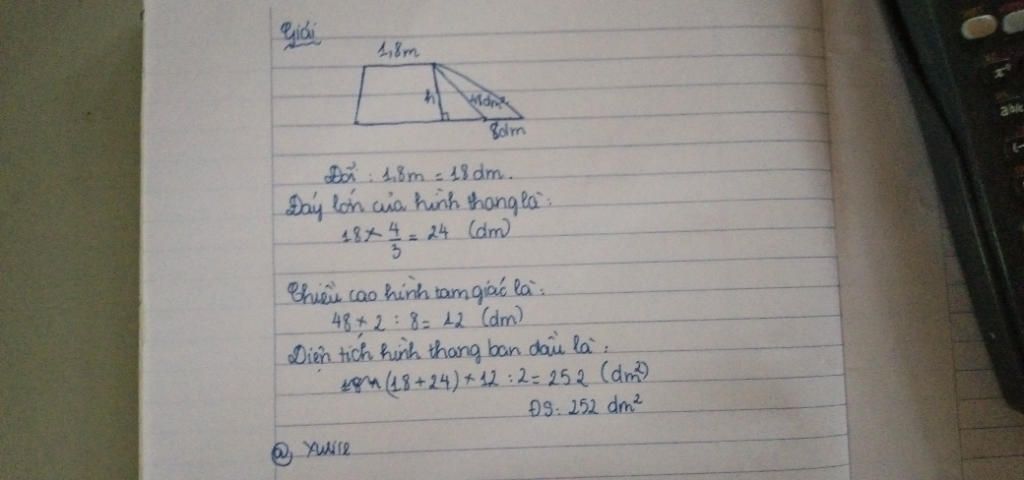 Giải
1,8m
h
48dm²
8dm
Đổi : 1,8m = 18dm.
Đáy lớn của hình thang là:
18 × 4/3 = 24 (dm)
Chiều cao hình tam giác là:
48 × 2 : 8 = 12 (dm)
Diện tích hình thang ban đầu là:
(18 + 24) × 12 : 2 = 252 (dm²)
ĐS: 252 dm²